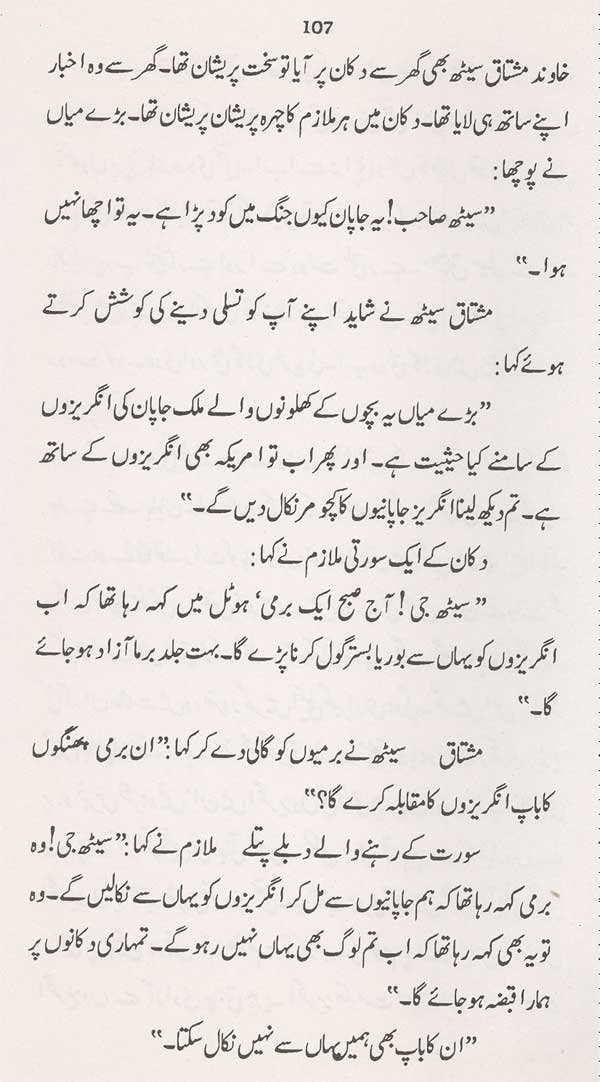 107
خاوند مشتاق سیٹھ بھی گھر سے دکان پر آیا تو سخت پریشان تھا۔ گھر سے وہ اخبار
اپنے ساتھ ہی لایا تھا۔ دکان میں ہر ملازم کا چہرہ پریشان پریشان تھا۔ بڑے میاں
نے پوچھا :
”سیٹھ صاحب! یہ جاپان کیوں جنگ میں کود پڑا ہے۔ یہ تو اچھا نہیں
ہوا۔“
مشتاق سیٹھ نے شاید اپنے آپ کو تسلی دینے کی کوشش کرتے
ہوئے کہا :
”بڑے میاں یہ بچوں کے کھلونوں والے ملک جاپان کی انگریزوں
کے سامنے کیا حیثیت ہے۔ اور پھر اب تو امریکہ بھی انگریزوں کے ساتھ
ہے۔ تم دیکھ لینا انگریز جاپانیوں کا کچومر نکال دیں گے۔“
دکان کے ایک سورتی ملازم نے کہا :
”سیٹھ جی! آج صبح ایک برمی‘ ہوٹل میں کہہ رہا تھا کہ اب
انگریزوں کو یہاں سے بوریا بستر گول کرنا پڑے گا۔ بہت جلد برما آزاد ہو جائے
گا۔“
مشتاق سیٹھ نے برمیوں کو گالی دے کر کہا : ”ان برمی پھنگوں
کا باپ انگریزوں کا مقابلہ کرے گا؟“
سورت کے رہنے والے دبلے پتلے ملازم نے کہا : ”سیٹھ جی! وہ
برمی کہہ رہا تھا کہ ہم جاپانیوں سے مل کر انگریزوں کو یہاں سے نکالیں گے۔ وہ
تو یہ بھی کہہ رہا تھا کہ اب تم لوگ بھی یہاں نہیں رہو گے۔ تمہاری دکانوں پر
ہمارا قبضہ ہو جائے گا۔“
”ان کا باپ بھی ہمیں یہاں سے نہیں نکال سکتا۔“